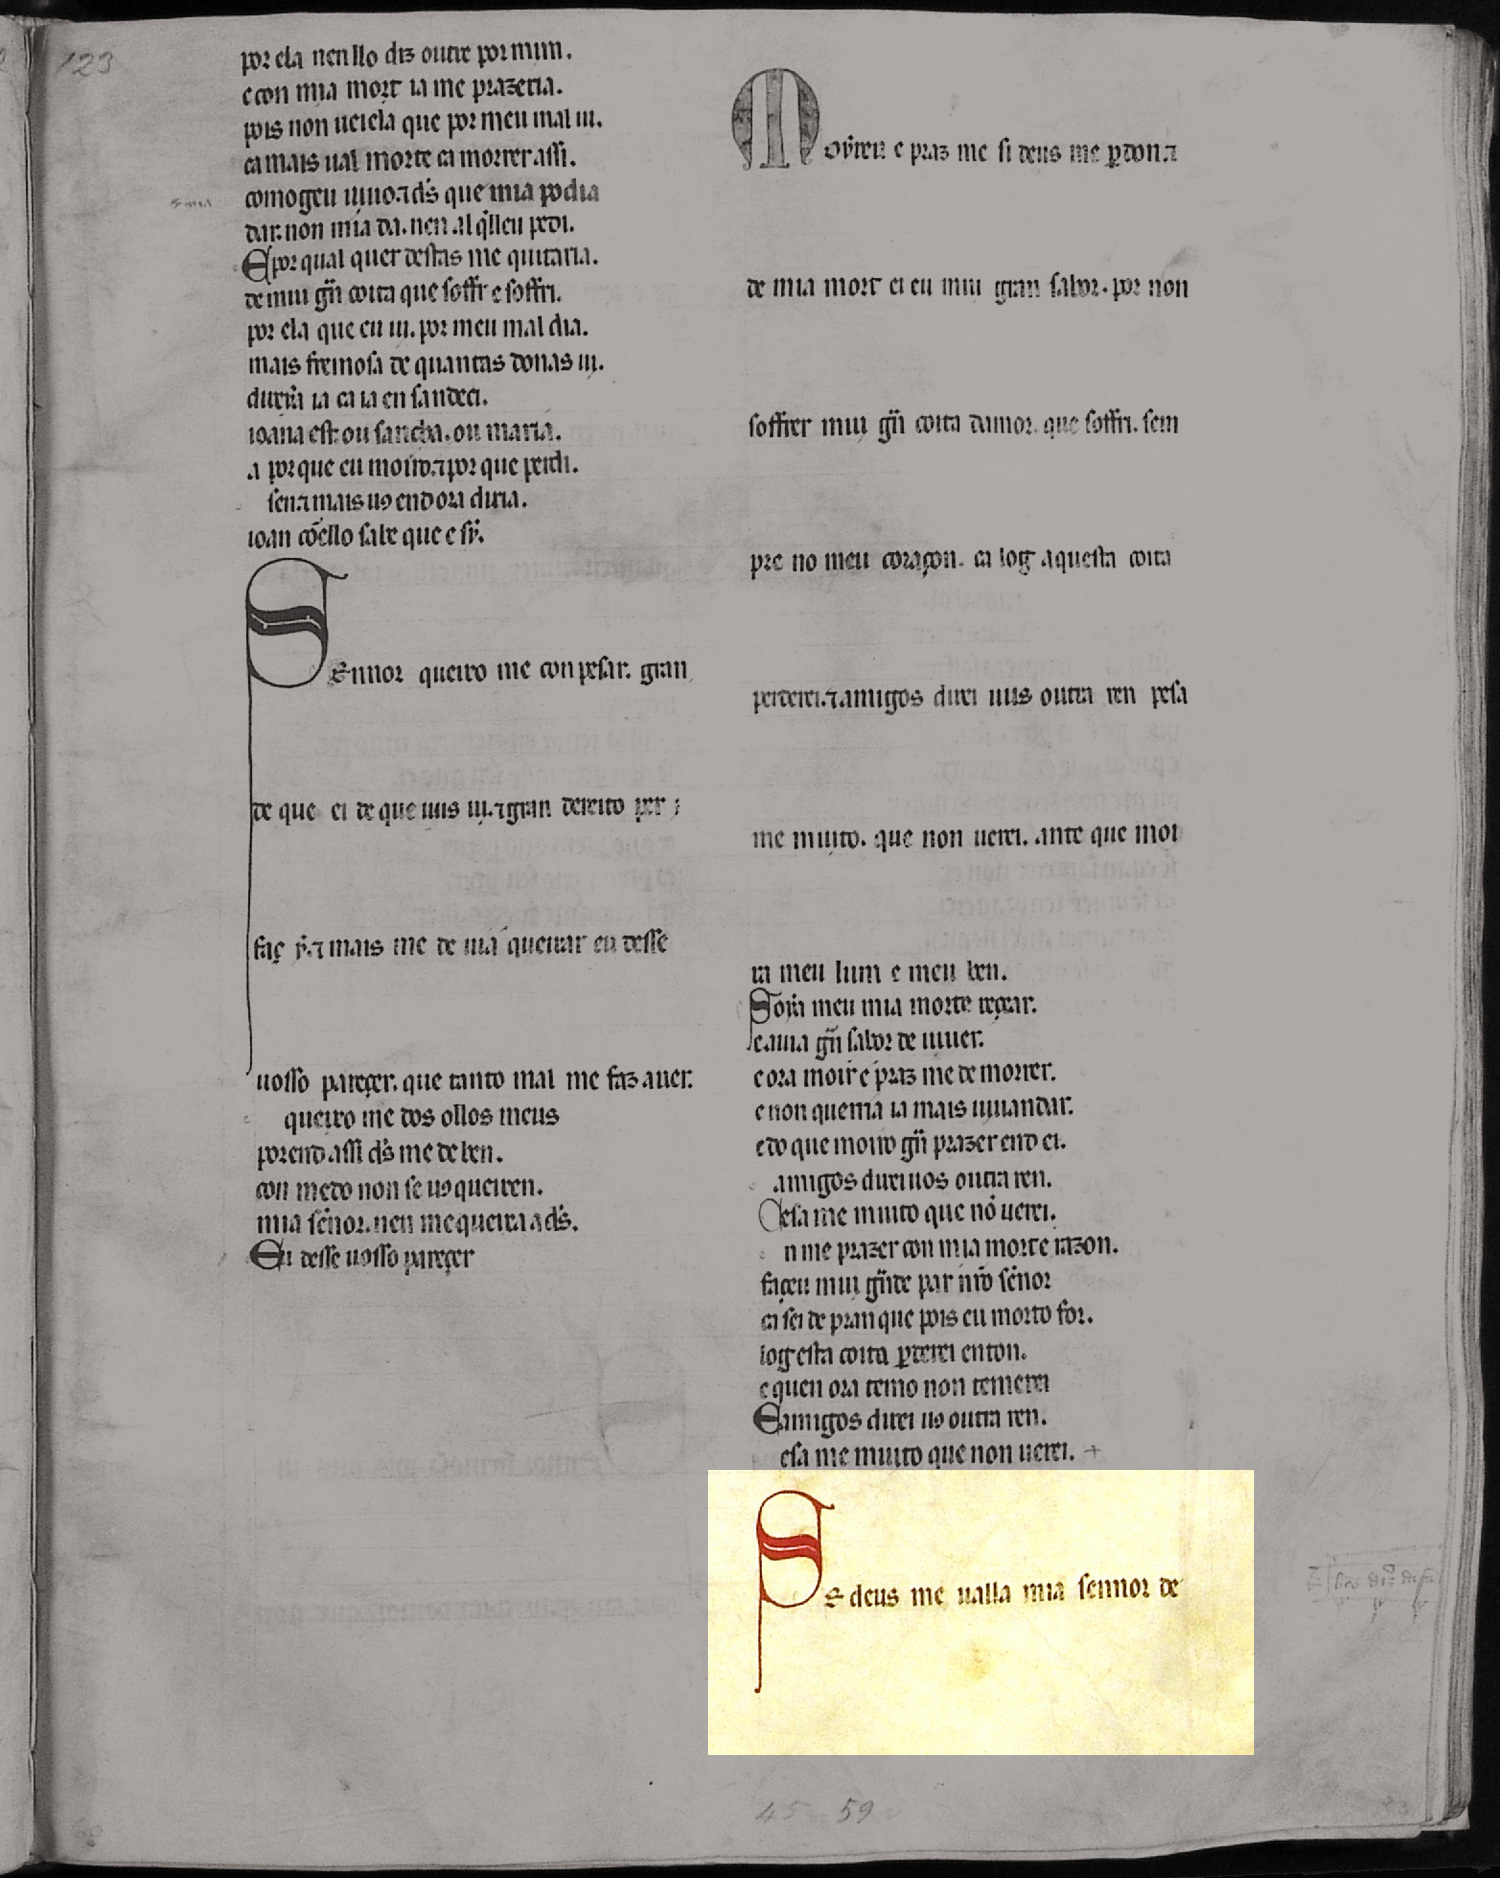 123
por ela nen llo diz outre por mim.
e con mia mort ia me prazeria.
pois non ueiela que por meu mal ui.
ca mais ual morte ca morrer assi.
comogeu uiuo.⁊ds que mia podia
dar. non mia da. nen al q̄lleu pedi.
E por qual quer destas me quitaria.
de mui gñ coita que soffr e soffri.
por ela que eu ui. por meu mal dia.
mais fremosa de quantas donas ui.
ia ca ia en sandeci.
ioana est. ou sancha. ou maria.
a por que eu moiro.⁊por que perdi.
sen.⁊mais uꝯ end ora diria.
ioan cõello sabe que e sỹ.
SEnnor queixo me con pesar. gran
de que ei de que uus ui.⁊gran dereito per
faç y.⁊ mais me de uia queixar eu desse
uosso pareçer. que tanto mal me faz auer.
queixo me dos ollos meus
porend assi ds me de ben.
con medo non se uꝯ queixen.
mia señor. nen me queixa a ds.
Eu desse uosso pareçer
Moyreu e praz me si deus me ꝑdon.⁊
de mia mort ei eu mui gran sabor. por non
soffrer mui gñ coita damor. que soffri. sem
pre no meu coraçon. ca log aquesta coita
perderei.⁊amigos direi uus outra ren pesa
me muito. que non uerei. ante que moi
ra meu lum e meu ben.
Soya meu mia morte reçear.
e auia gñ sabor de uiuer.
e ora moir e praz me de morrer.
e non querria ia mais uiuandar.
e do que moiro gñ prazer end ei.
amigos direiuos outra ren.
esa me muito que nõ uerei.
n me prazer con mia morte razon.
façeu mui gñde par nr̃o señor
ca sei de pran que pois eu morto for.
log esta coita ꝑderei enton.
e quen ora temo non temerei
E amigos direi uꝯ outra ren.
esa me muito que non uerei. +
SE deus me ualla mia sennor de
45 59